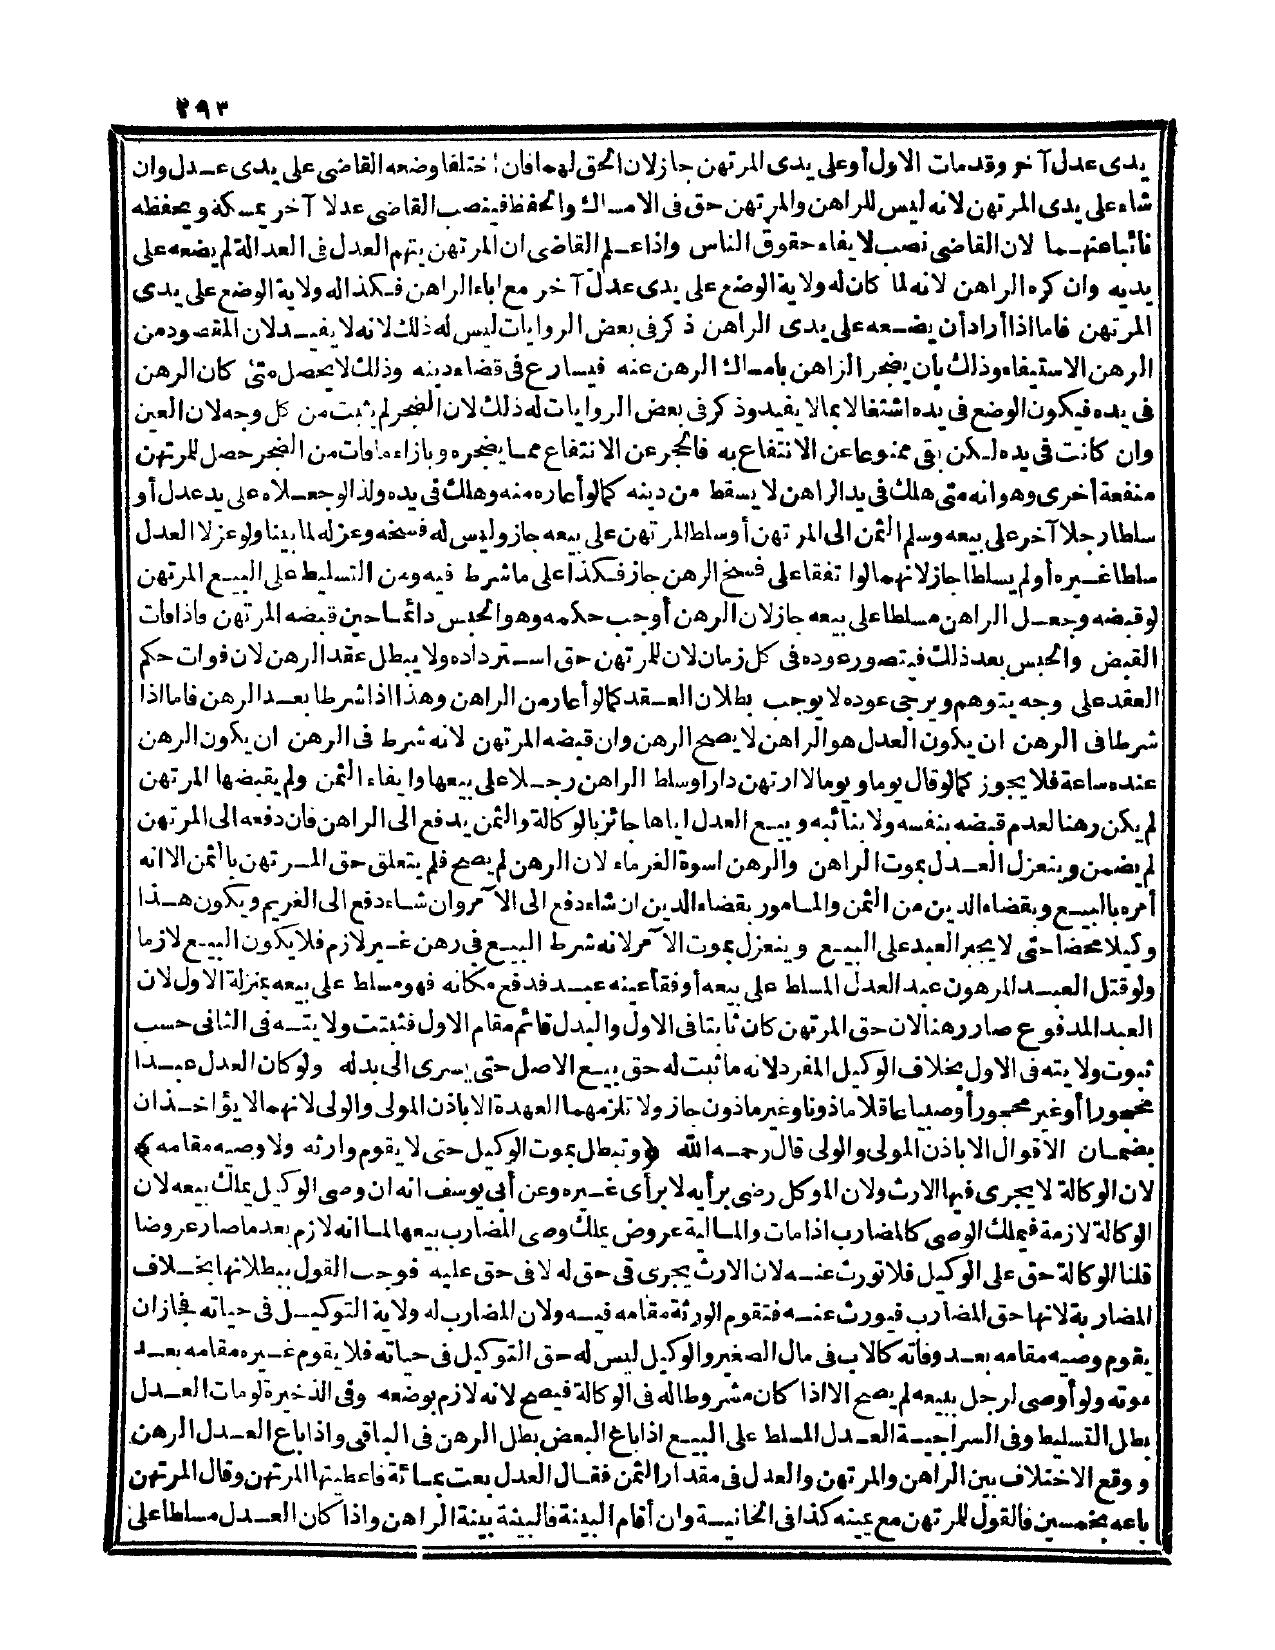 ٢٩٣
يدى عدل آخر وقدمات الاول أوعلى يدى المرتهن جازلان الحق لهما فان اختلفا وضعه القاضى على يدى عدل وان
شاء على يدى المرتهن لانه ليس للراهن والمرتهن حق فى الامساك والحفظ فينصب القاضى عدلا آخر يمسكه ويحفظه
نائبا عنهما لان القاضى نصب لايفاء حقوق الناس واذا علم القاضى ان المرتهن يتهم العدل فى العدالة لم يضعه على
يديه وان كره الراهن لانه لما كان له ولاية الوضع على يدى عدل آخر مع اباء الراهن فكذا له ولاية الوضع على يدى
المرتهن فاما اذا أراد أن يضعه على يدى الراهن ذكر فى بعض الروايات ليس له ذلك لانه لا يفيد لان المقصود من
الرهن الاستيفاء وذلك بان يضجر الراهن بامساك الرهن عنه فيسارع فى قضاء دينه وذلك لا يحصل متى كان الرهن
فى يده فيكون الوضع فى يده اشتغالا بما لا يفيد وذكر فى بعض الروايات له ذلك لان الضجر لم يثبت من كل وجه لان العين
وان كانت فى يده لكن بقى ممنوعا عن الانتفاع به فالحجر عن الانتفاع مما يضجره وبازاء ما فات من الضجر حصل للمرتهن
منفعة أخرى وهو انه متى هلك فى يد الراهن لا يسقط من دينه كما لو أعاره منه وهلك فى يده ولذا لو جعلاه على يد عدل أو
سلطا رجلا آخر على بيعه وسلم الثمن الى المرتهن أو سلط المرتهن على بيعه جاز وليس له فسخه وعزله لما بينا ولو عزلا العدل
سلطا غيره أو لم يسلطا جاز لانهما لو اتفقا على فسخ الرهن جاز فكذا على ما شرط فيه ومن التسليط على البيع المرتهن
لو قبضه وجعل الراهن مسلطا على بيعه جاز لان الرهن أوجب حكمه وهو الحبس دائما حين قبضه المرتهن فاذا فات
القبض والحبس بعد ذلك فيتصور عوده فى كل زمان لان للمرتهن حق استرداده ولا يبطل عقد الرهن لان فوات حكم
العقد على وجه يتوهم ويرجى عوده لا يوجب بطلان العقد كما لو أعار من الراهن وهذا اذا شرطا بعد الرهن فاما اذا
شرطا فى الرهن ان يكون العدل هو الراهن لا يصح الرهن وان قبضه المرتهن لانه شرط فى الرهن ان يكون الرهن
عنده ساعة فلا يجوز كما لو قال يوما ويوما لا ارتهن دارا وسلط الراهن رجلا على بيعها وايفاء الثمن ولم يقبضها المرتهن
لم يكن رهنا لعدم قبضه بنفسه ولا بنائبه وبيع العدل اياها جائز بالوكالة والثمن يدفع الى الراهن فان دفعه الى المرتهن
لم يضمن وينعزل العدل بموت الراهن والرهن اسوة الغرماء لان الرهن لم يصح فلم يتعلق حق المرتهن بالثمن الا انه
أمره بالبيع وبقضاء الدين من الثمن والمامور بقضاء الدين ان شاء دفع الى الآمر وان شاء دفع الى الغريم ويكون هذا
وكيلا محضا حتى لا يجبر العبد على البيع وينعزل بموت الآمر لانه شرط البيع فى رهن غير لازم فلا يكون البيع لازما
ولو قتل العبد المرهون عبد العدل المسلط على بيعه أو فقأ عينه عبد فدفع مكانه فهو مسلط على بيعه بمنزلة الاول لان
العبد المدفوع صار رهنا لان حق المرتهن كان ثابتا فى الاول والبدل قائم مقام الاول فثبتت ولايته فى الثانى حسب
ثبوت ولايته فى الاول بخلاف الوكيل المفرد لانه ما ثبت له حق بيع الاصل حتى يسرى الى بدله ولو كان العدل عبدا
محجورا أو غير محجور أو صبيا عاقلا ماذونا وغير ماذون جاز ولا تلزمهما العهدة الا باذن المولى والولى لانهما لا يؤاخذان
بضمان الاقوال الا باذن المولى والولى قال رحمه الله ﴿وتبطل بموت الوكيل حتى لا يقوم وارثه ولا وصيه مقامه﴾
لان الوكالة لا يجرى فيها الارث ولان الموكل رضى برأيه لا برأى غيره وعن أبى يوسف انه ان وصى الوكيل يملك بيعه لان
الوكالة لازمة فيملك الوصى كالمضارب اذا مات والمالية عروض يملك وصى المضارب بيعها لما انه لازم بعد ما صار عروضا
قلنا الوكالة حق على الوكيل فلا تورث عنه لان الارث يجرى فى حق له لا فى حق عليه فوجب القول ببطلانها بخلاف
المضاربة لانها حق المضارب فيورث عنه فتقوم الورثة مقامه فيه ولان المضارب له ولاية التوكيل فى حياته فجاز ان
يقوم وصيه مقامه بعد وفاته كالاب فى مال الصغير والوكيل ليس له حق التوكيل فى حياته فلا يقوم غيره مقامه بعد
موته ولو أوصى لرجل ببيعه لم يصح الا اذا كان مشروطا له فى الوكالة فيصح لانه لازم بوضعه وفى الذخيرة لو مات العدل
بطل التسليط وفى السراجية العدل المسلط على البيع اذا باع البعض بطل الرهن فى الباقى واذا باع العدل الرهن
ووقع الاختلاف بين الراهن والمرتهن والعدل فى مقدار الثمن فقال العدل بعت بمائة فاعطيتها المرتهن وقال المرتهن
باعه بخمسين فالقول للمرتهن مع يمينه كذا فى الخانية وان أقام البينة فالبينة بينة الراهن واذا كان العدل مسلطا على